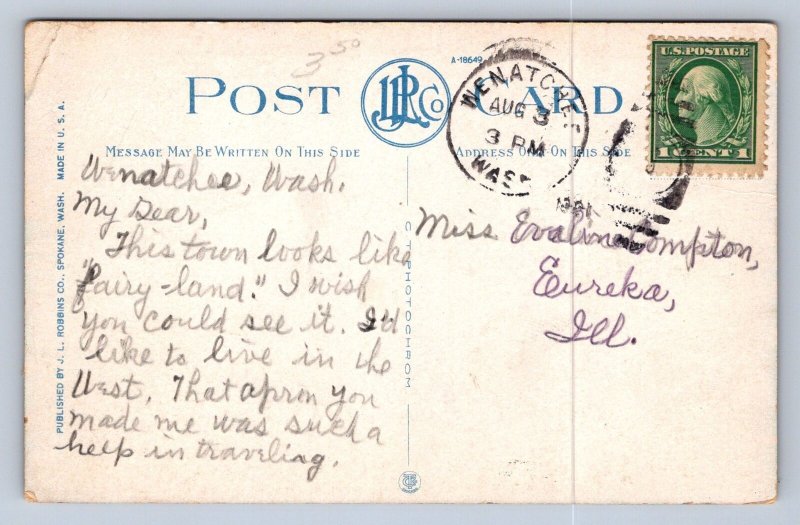 3 50
A-18649
POST CARD
JLR Co
U.S. POSTAGE
1 CENT 1
WENATCHEE
AUG 3
3 PM
WASH
MESSAGE MAY BE WRITTEN ON THIS SIDE
ADDRESS ONLY ON THIS SIDE
Wenatchee, Wash.
My Dear,
This town looks like
"fairy-land." I wish
you could see it. I'd
like to live in the
West. That apron you
made me was such a
help in traveling.
Miss Evaline Compton,
Eureka,
Ill.
PUBLISHED BY J. L. ROBBINS CO., SPOKANE, WASH. MADE IN U. S. A.
C T PHOTOCHROM